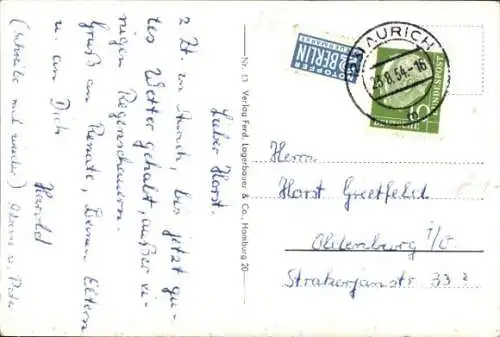 Lieber Horst.
2 Br. in Aurich, bis jetzt gu-
tes Wetter gehabt, außer ei-
nigen Regenschauern.
Gruß an Renate, Deinen Eltern
u. an Dich
Harold
(Schreibe mal wieder)
Nr. 13 Verlag Ferd. Lagerbauer & Co., Hamburg 20
NOTOPFER
2 BERLIN
STEUERMARKE
AURICH
23.8.54.-16
DEUTSCHE
BUNDESPOST
10
Herrn
Horst Greetfeld
Oldenburg i/O
Strakerjanstr 33